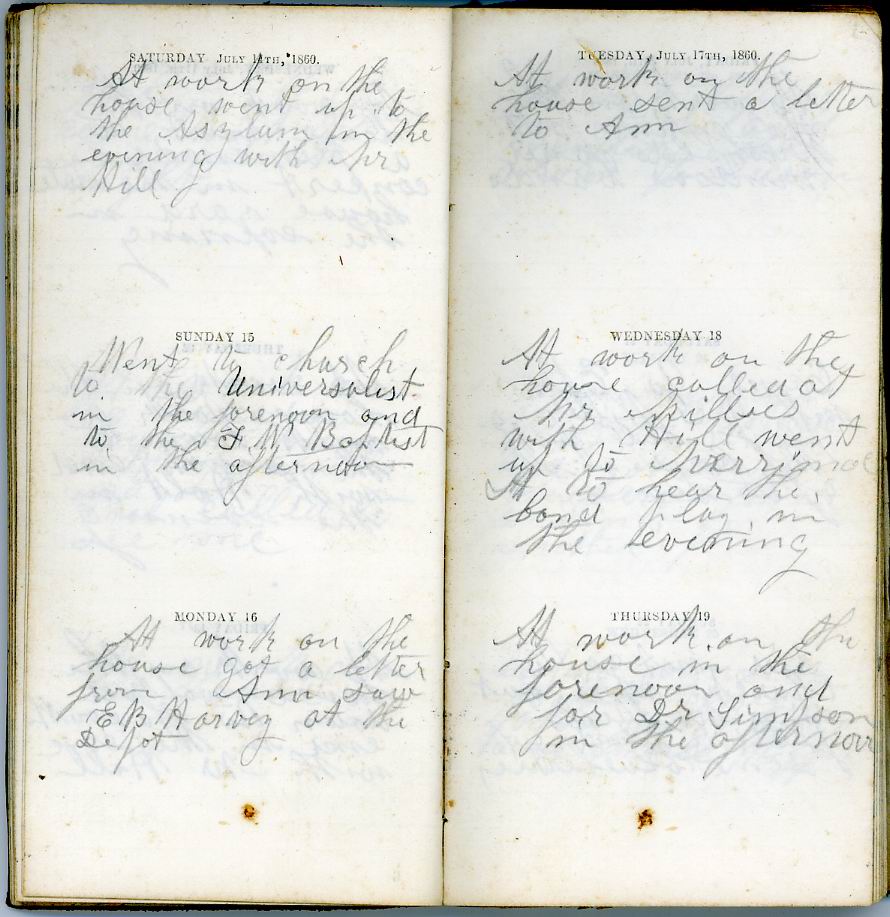 SATURDAY JULY 14TH, 1860.
At work on the
house went up to
the Asylum in the
evening with Mr
Hill
SUNDAY 15
Went to church
to the Universalist
in the forenoon and
to the F. W. Baptist
in the afternoon
MONDAY 16
At work on the
house got a letter
from Ann saw
E B Harvey at the
Depot
TUESDAY, JULY 17TH, 1860.
At work on the
house sent a letter
to Ann
WEDNESDAY 18
At work on the
house called at
Mr
with Hill went
up to Merrimac
St to hear the
band play in
the evening
THURSDAY 19
At work on the
house in the
forenoon and
for Dr Simpson
in the afternoon